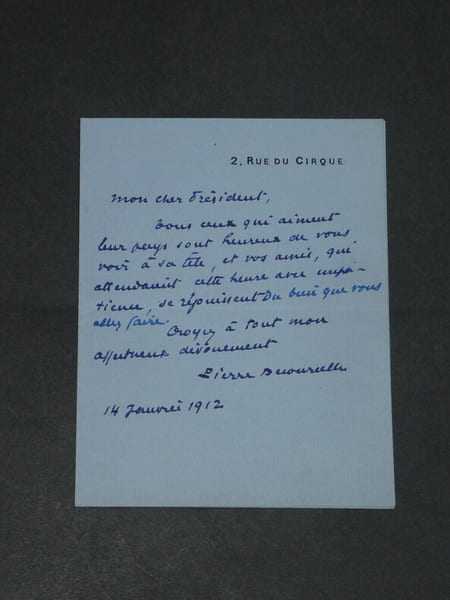 2, RUE DU CIRQUE
Mon cher Président,
Tous ceux qui aiment
leur pays sont heureux de vous
voir à sa tête, et vos amis, qui
attendaient cette heure avec impa-
tience, se réjouissent Du bien que vous
allez faire.
Croyez à tout mon
affectueux dévouement
Pierre Decourcelle
14 Janvier 1912